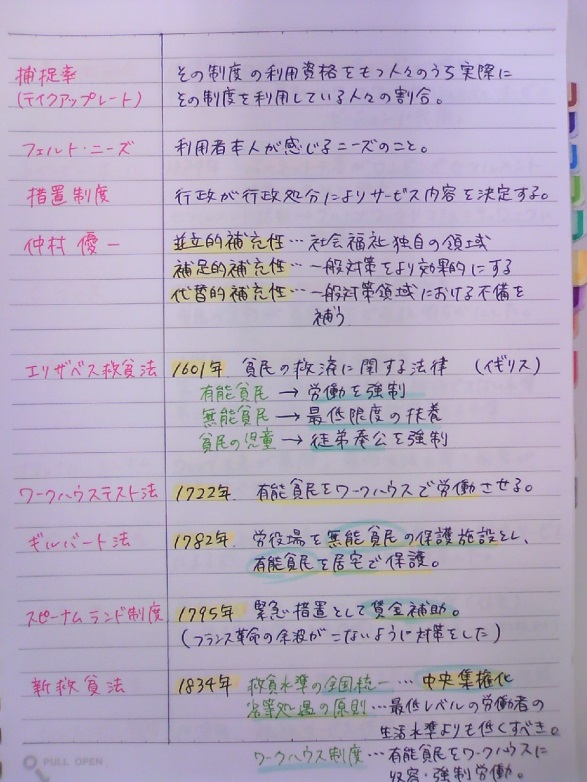 捕捉率 その制度の利用資格をもつ人々のうち実際に
(テイクアップレート) その制度を利用している人々の割合。
フェルト・ニーズ 利用者本人が感じるニーズのこと。
措置制度 行政が行政処分によりサービス内容を決定する。
仲村優一 並立的補充性…社会福祉独自の領域
補足的補充性…一般対策をより効果的にする
代替的補充性…一般対策領域における不備を
補う
エリザベス救貧法 1601年 貧民の救済に関する法律 (イギリス)
有能貧民→労働を強制
無能貧民→最低限度の扶養
貧民の児童→徒弟奉公を強制
ワークハウステスト法 1722年 有能貧民をワークハウスで労働させる。
ギルバート法 1782年 労役場を無能貧民の保護施設とし、
有能貧民を居宅で保護。
スピーナムランド制度 1795年 緊急措置として賃金補助。
(フランス革命の余波がこないように対策をした)
新救貧法 1834年 救貧水準の全国統一…中央集権化
劣等処遇の原則…最低レベルの労働者の
生活水準よりも低くすべき。
ワークハウス制度…有能貧民をワークハウスに
収容・強制労働。
PULL OPEN